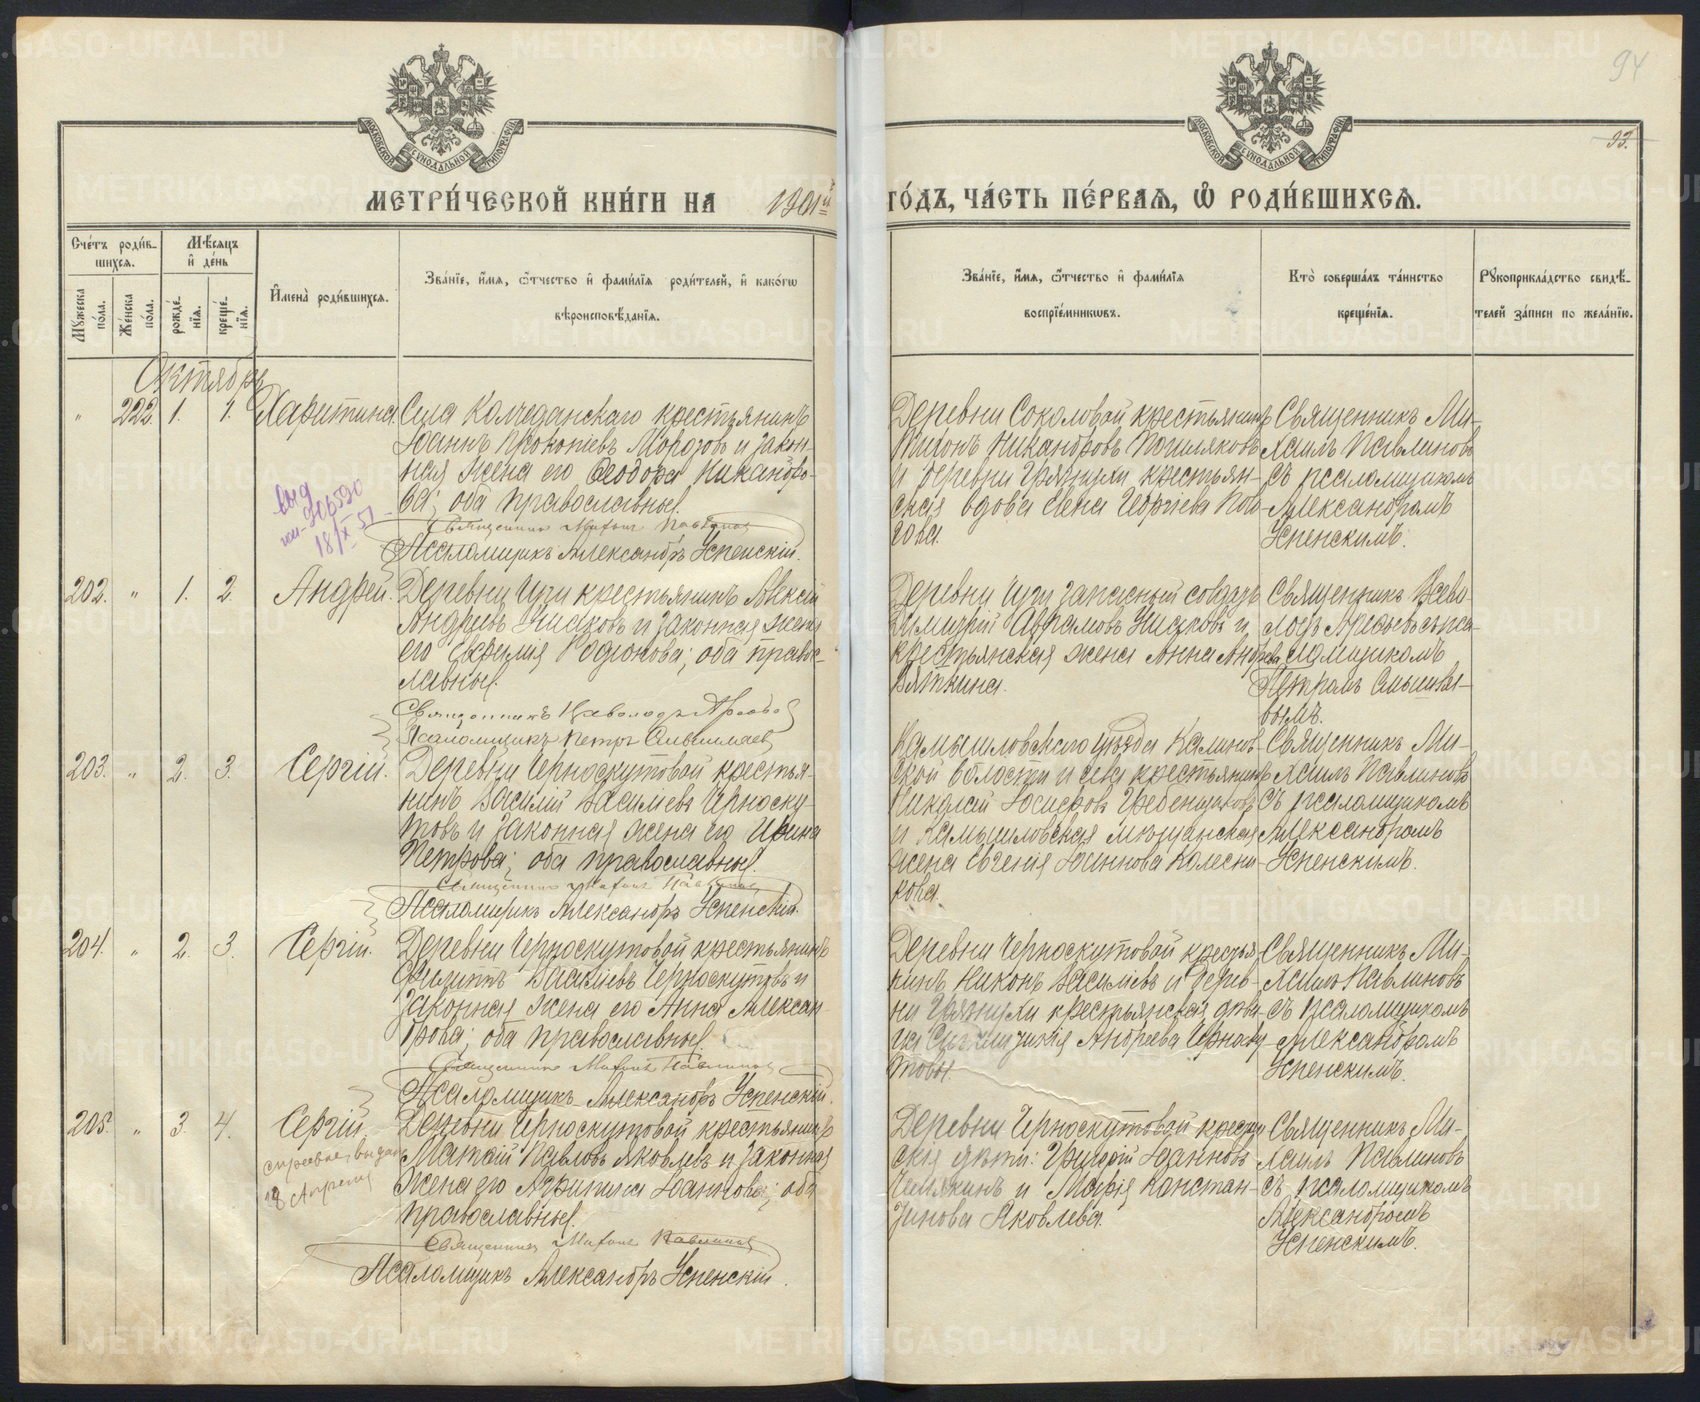 94
93.
МОСКОВСКОЙ СѴНОДАЛЬНОЙ ТИПОГРАФІИ
МОСКОВСКОЙ СѴНОДАЛЬНОЙ ТИПОГРАФІИ
МЕТРИ́ЧЕСКОЙ КНИ́ГИ НА 1901й
ГО́ДЪ, ЧА́СТЬ ПЕ́РВАЯ, Ѽ РОДИ́ВШИХСЯ.
Сче́тъ роди́в-
шихся.
Мѣ́сяцъ
и де́нь
Мꙋ́жеска по́ла.
Же́нска по́ла.
рожде́нїя.
креще́нїя.
И҆мена̀ роди́вшихся.
Зва́нїе, и҆́мя, ѻ҆́тчество и҆ фами́лїя роди́телей, и҆ како́гѡ
вѣроисповѣ́данїя.
Зва́нїе, и҆́мя, ѻ҆́тчество и҆ фами́лїя
воспрїе́мникѡвъ.
Кто̀ соверша́лъ та́инство
креще́нїя.
Рꙋкоприкла́дство свидѣ́-
телей за́писи по жела́нїю.
Октябрь
" 222. 1. 1. Харитина.
Села Колчеданскаго крестьянинъ
Іоаннъ Прокопіевъ Морозовъ и закон-
ная жена его Ѳеодора Никандро-
ва; оба православные.
Священникъ Михаилъ Павлиновъ
Псаломщикъ Александръ Успенскій.
18/X 51
Деревни Соколовой крестьянинъ
Никандровъ
и деревни Грязнухи крестьян-
ская вдова Елена Георгіева
Священникъ Ми-
хаилъ Павлиновъ
съ псаломщикомъ
Александромъ
Успенскимъ.
202. " 1. 2. Андрей.
Деревни крестьянинъ Алексѣй
Андреевъ и законная жена
его Родіонова; оба право-
славные.
Священникъ Всеволодъ
Псаломщикъ Петръ
Деревни запасный солдатъ
Димитрій Аврамовъ и
крестьянская жена Анна Андреева
Вяткина.
Священникъ Всево-
лодъ съ пса-
ломщикомъ
Петромъ
вымъ.
203. " 2. 3. Сергій.
Деревни Черноскутовой крестья-
нинъ Василій Васильевъ Черноску-
товъ и законная жена его Ирина
Петрова; оба православные.
Священникъ Михаилъ Павлиновъ
Псаломщикъ Александръ Успенскій.
Камышловскаго уѣзда Калинов-
ской волости и села крестьянинъ
Николай Іосифовъ Гребенщиковъ
и Камышловская мѣщанская
жена Евгенія Іоаннова Колесни-
кова.
Священникъ Ми-
хаилъ Павлиновъ
съ псаломщикомъ
Александромъ
Успенскимъ.
204. " 2. 3. Сергій.
Деревни Черноскутовой крестьянинъ
Филиппъ Васильевъ Черноскутовъ и
законная жена его Анна Алексан-
дрова; оба православные.
Священникъ Михаилъ Павлиновъ
Псаломщикъ Александръ Успенскій.
Деревни Черноскутовой крестья-
нинъ Никонъ Васильевъ и дерев-
ни Грязнухи крестьянская дѣви-
ца Андреева
Священникъ Ми-
хаилъ Павлиновъ
съ псаломщикомъ
Александромъ
Успенскимъ.
205. " 3. 4. Сергій.
справка выдана
18 Апреля
Деревни Черноскутовой крестьянинъ
Матѳій Павловъ Яковлевъ и законная
жена его Агрипина Іоаннова; оба
православные.
Священникъ Михаилъ Павлиновъ
Псаломщикъ Александръ Успенскій.
Деревни Черноскутовой крестьян-
скія дѣти: Григорій Іоанновъ
Чемякинъ и Марія Констан-
тинова Яковлева.
Священникъ Ми-
хаилъ Павлиновъ
съ псаломщикомъ
Александромъ
Успенскимъ.
METRIKI.GASO-URAL.RU